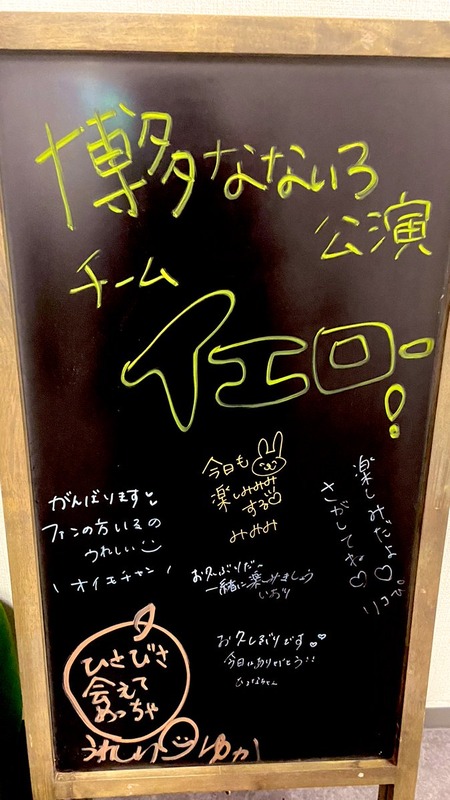 博多なないろ
公演
チーム
イエロー!
今日も
楽しみみみ
する♡
みみみ
がんばります
ファンの方いるの
うれしい
\ オイモチャン /
楽しみだよ♡
さがしてね♡
リコぴ
お久ぶりだ〜
一緒に楽しみましょう
いおり
お久しぶりです
今日はありがとう!!
ひとびさ
会えて
めっちゃ
うれしい
ゆか